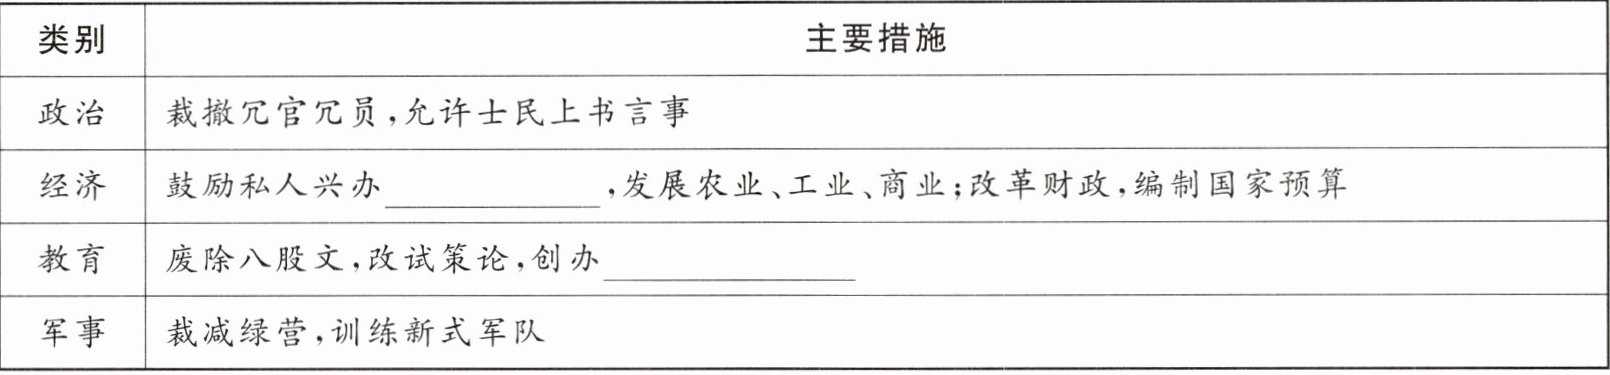 类别 主要措施
政治 裁撤冗官冗员,允许士民上书言事
经济 鼓励私人兴办____________,发展农业、工业、商业;改革财政,编制国家预算
教育 废除八股文,改试策论,创办______________
军事 裁减绿营,训练新式军队